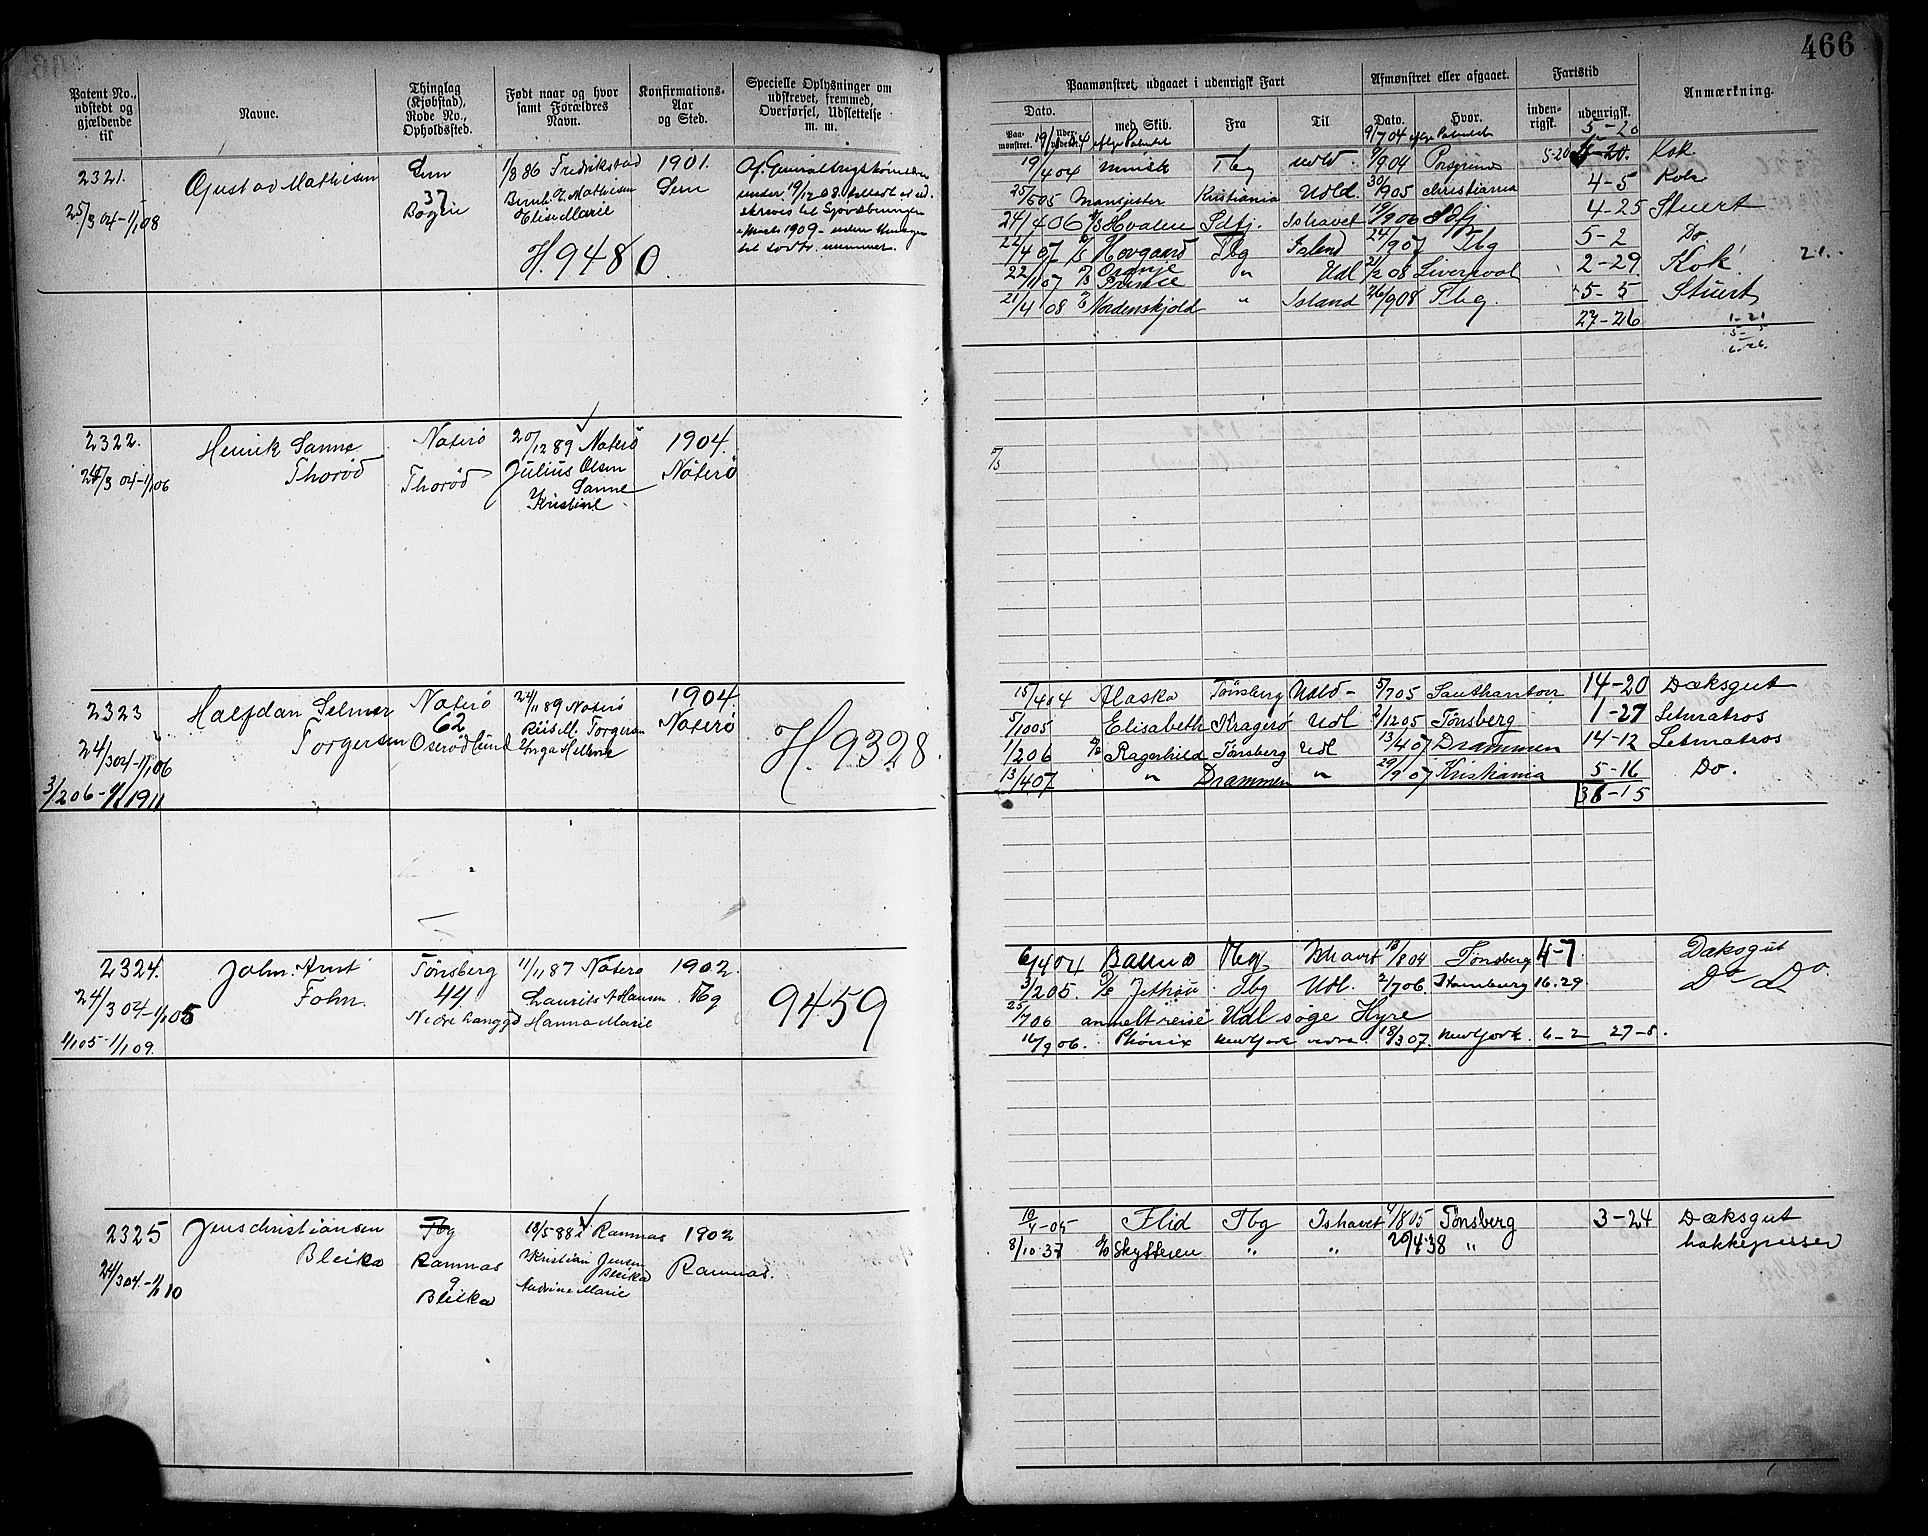 466
Patent No., udstedt og gjældende til
Navne.
Thinglag (Kjøbstad), Rode No., Opholdssted.
Født naar og hvor samt Forældres Navn.
Konfirmations-Aar og Sted.
Specielle Oplysninger om udskrevet, fremmed, Overførsel, Udslettelse m. m.
Paamønstret, udgaaet i udenrigsk Fart
Afmønstret eller afgaaet.
Fartstid
Anmærkning.
Dato.
med Skib.
Fra
Til
Dato.
Hvor.
inden-rigsk.
udenrigsk.
Paa-mønstret.
5-20
2321.
25/3 04-1/1 08
Gustav Mathisen
Sem
37
Bogen
1/8 86 Fredrikstad
Bernh. E. Mathisen
Elise Marie
H. 9480
1901.
Sem
19/4 04 Minsk Tbg Udld. 9/9 04 Porsgrund 5-20 Kok
25/5 05 Kristiania Udld. 30/9 05 Christiania 4-5 Kok
24/4 06 Hvalen Sdfj. Ishavet 19/9 06 Sdfj 4-25 Stuert
22/4 07 Hovgaard Tbg Island 24/9 07 Tbg 5-2 Do
22/11 07 Oranje Prince " Udl 21/2 08 Liverpool 2-29 Kok!
21/4 08 Nordenskjold " Island 26/9 08 Tbg. 5-5 Stuert
27-26
1-21
5-5
6-26.
2322.
24/3 04-1/1 06
Henrik Sanne
Thorød
Nøterø
Thorød
20/12 89 Nøterø
Julius Olsen
Sanne
Kristine
1904.
Nøterø
2323
24/3 04-1/1 06
3/2 06-1/1 1911
Halfdan Selmer
Torgersen
Nøterø
62
Oserød lund
24/11 89 Nøterø
Torgersen
Inga Helene
1904.
Nøterø
H. 9328.
15/4 04 Alaska Tönsberg Udld- 5/7 05 14-20 Dæksgut
5/10 05 Elisabeth Kragerø Udl 2/12 05 Tönsberg 1-27 Letmatros
1/2 06 Ragnhild Tönsberg Udl 13/4 07 Drammen 14-12 Letmatros
13/4 07 " Drammen " 29/9 07 Kristiania 5-16 Do.
36-15
2324.
24/3 04-1/1 05
1/1 05-1/1 09.
John. Arnt
Fohn.
Tönsberg
44
Nedre Langgd
11/11 87 Nøterø
Laurits A Hansen
Hanna Marie
1902.
Tbg
9459
6/4 04 Tbg Ishavet 18/8 04 Tönsberg 4-7 Daksgut
3/2 05 Tbg Udl. 2/7 06. Hamburg 16.29 Do Do
25/7 06 anmelt reise Udl søge Hyre
16/9 06. Phönix New York 18/3 07. New York. 6-2 27-8.
2325
24/3 04.-1/1 10
Jens Christiansen
Bleika
Tbg
Ramnæs
9
Bleika
18/5 88 Ramnæs
Kristian Jensen
Bleika
Andrine Marie
1902
Ramnæs.
10/4-05 Flid Tbg Ishavet 1/8 05 Tönsberg 3-24 Dæksgut
8/10 37 Skytteren " " 20/4 38 " hakkepisser